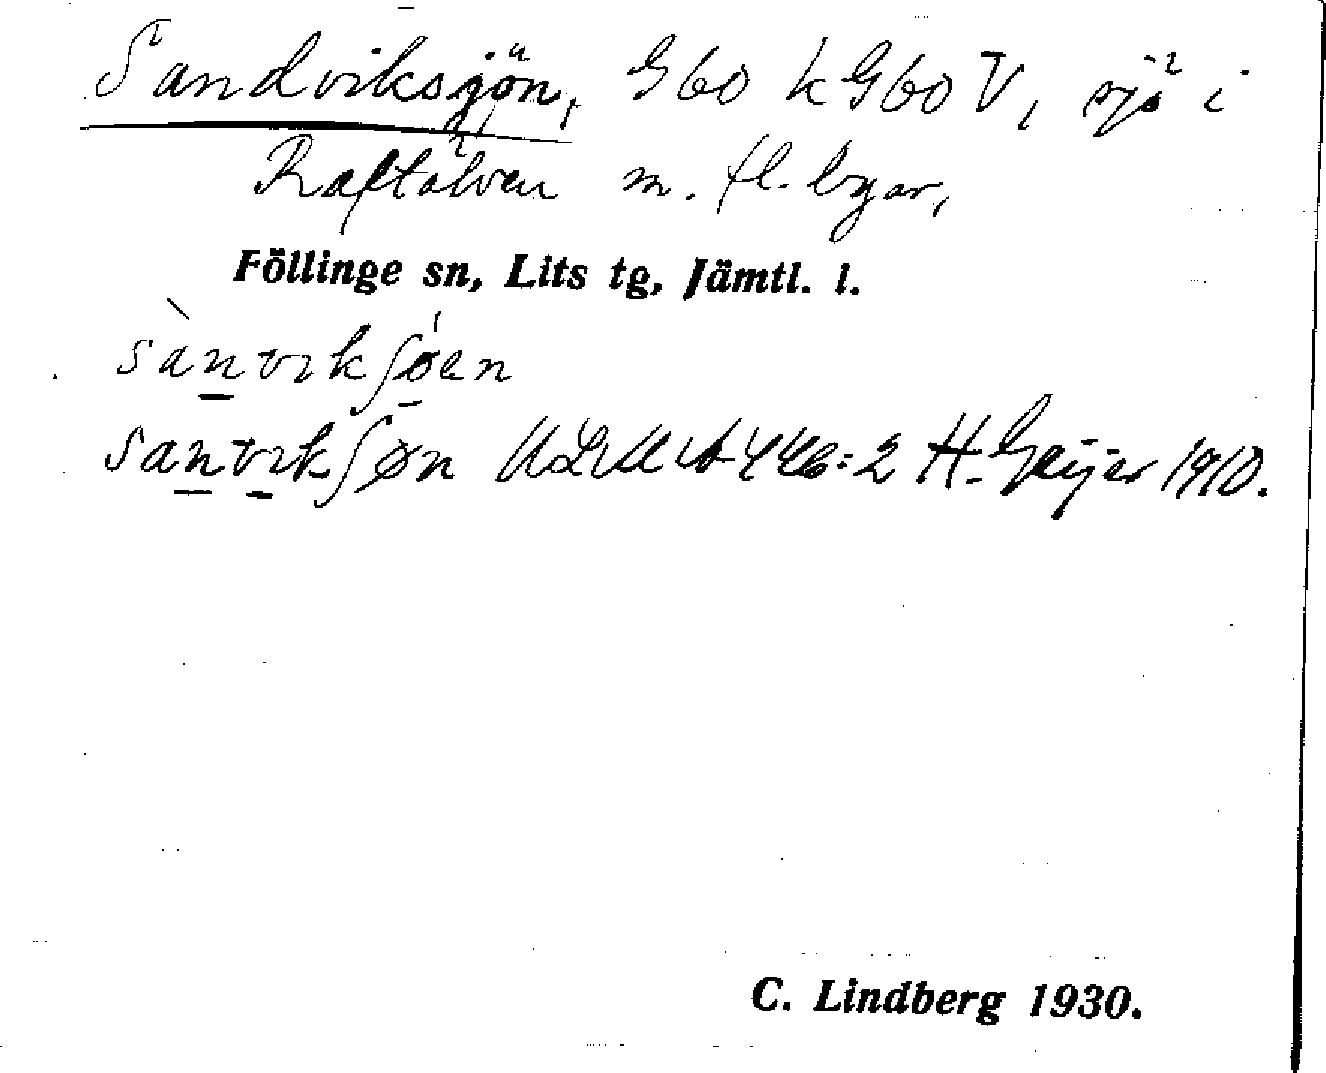 Sandviksjön, G60 k G60 V, sjö i
Raftälven m. fl. byar,
Föllinge sn, Lits tg, Jämtl. l.
sàn̲vɪkʃǿ̲en
san̲v̲ɪkʃøn ULMA 446:2 H. Geijer 1910.
C. Lindberg 1930.